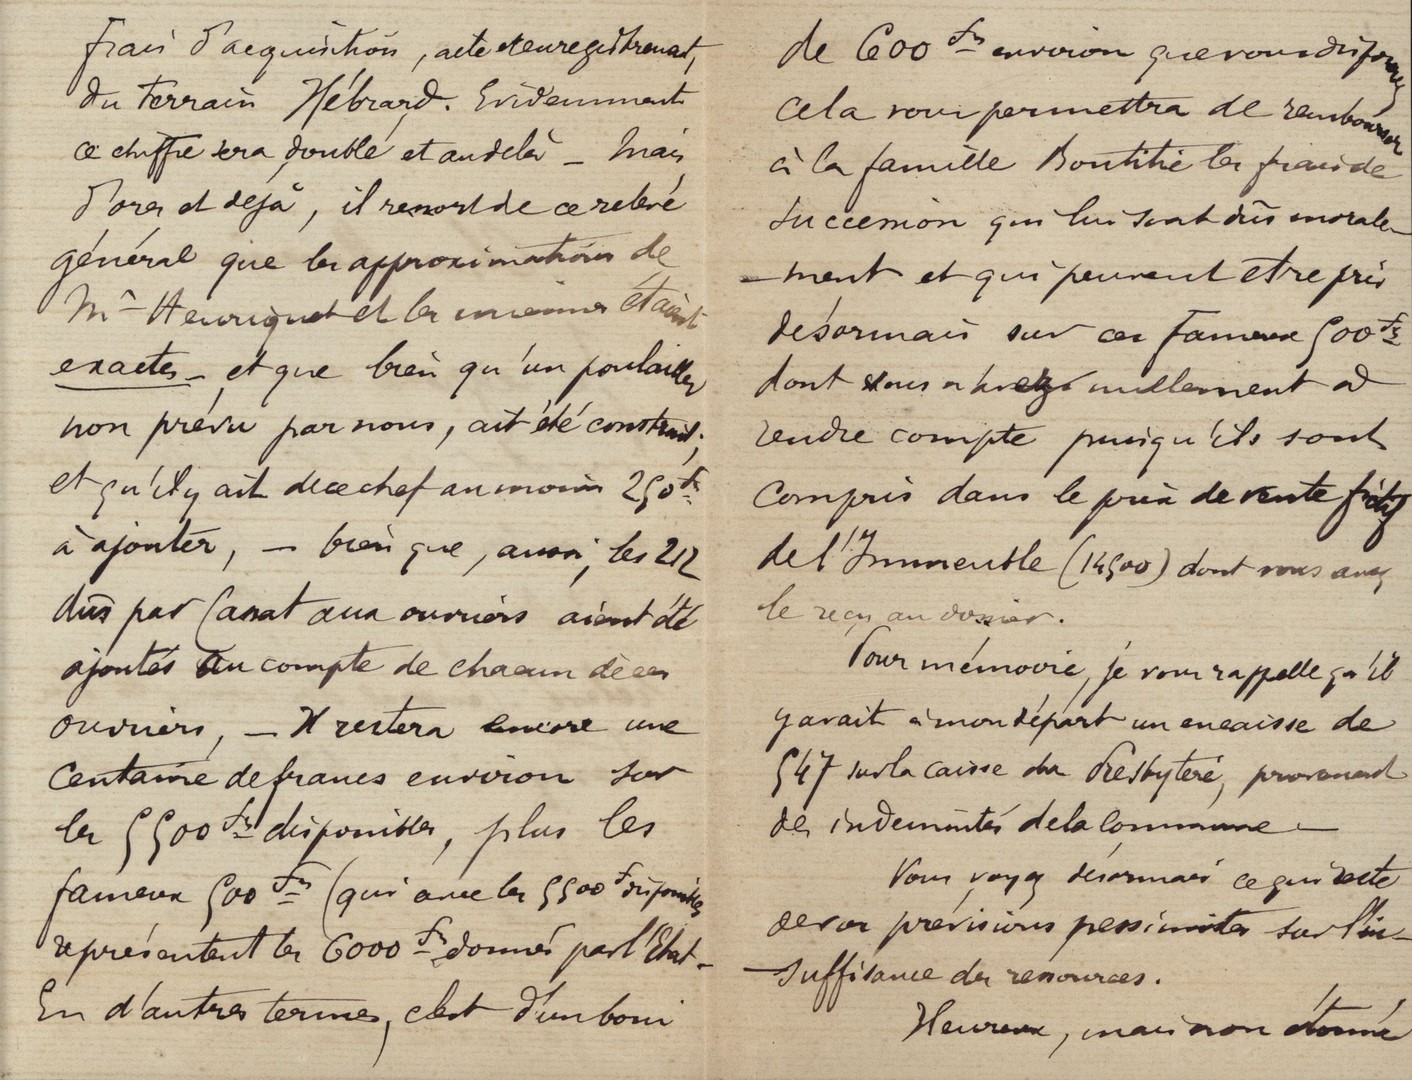 frais d'acquisition, acte et enregistrement,
du terrain Hébrard. Evidemment
ce chiffre sera doublé et au delà – Mais
d'ores et déjà, il ressort de ce relevé
général que les approximations de
Mr Henriquet et les miennes étaient
exactes – et que bien qu'un poulailler
non prévu par nous, ait été construit,
et qu'il y ait de ce chef au moins 250 frs
à ajouter, – bien que, aussi, les 212
dûs par Canat aux ouvriers aient été
ajoutés au compte de chacun de ces
ouvriers, – Il restera encore une
centaine de francs environ sur
les 5500 frs disponibles, plus les
fameux 500 frs (qui avec les 5500 f disponibles
représentent les 6000 frs donnés par l'Etat –
En d'autres termes, c'est d'un boni
de 600 frs environ que vous disposez
cela vous permettra de rembourser
à la famille Boutitié les frais de
succession qui lui sont dûs morale-
-ment et qui peuvent etre pris
désormais sur ces fameux 500 frs
dont vous n'avez nullement à
rendre compte puisqu'ils sont
compris dans le prix de vente fictif
de l'Immeuble (14500) dont vous avez
le reçu au dossier.
Pour mémoire, je vous rappelle qu'il
y avait à mon départ un encaisse de
547 sur la caisse du Presbytère, provenant
des indemnités de la Commune –
Vous voyez désormais ce qui reste
de vos prévisions pessimistes sur l'in-
-suffisance des ressources.
Heureux, mais non étonné